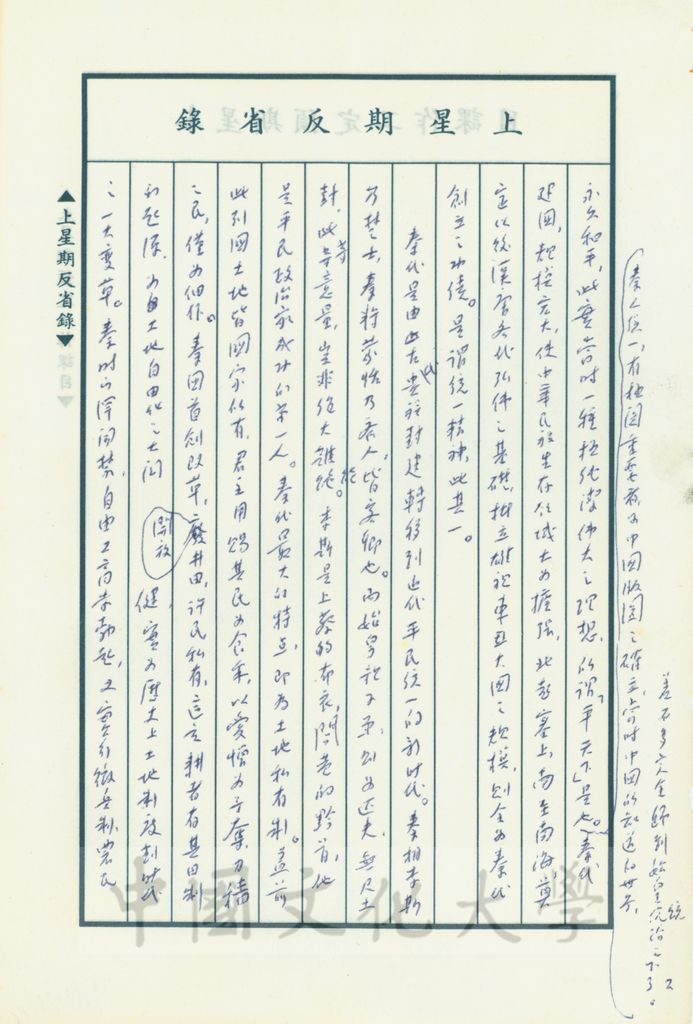 上星期反省錄
秦人統一，有極關重要者為中國版圖之確立，當時中國的
差不多完全歸到始皇統治之下了。
永久和平，此實當時一種極偉大之理想，所謂「平天下」是也。秦代
建國，規模宏大，使中華民族生存領域大為擴張，北起塞上，南至南海，奠
定以後漢唐各代弘偉之基礎，樹立雄視東亞大國之規模，則全為秦代
創立之功績。是謂統一精神，此其一。
秦代是由此古代貴族封建轉移到近代平民統一的新時代。秦相李斯
乃楚士，秦將蒙恬乃齊人，皆客卿也。而始皇視子弟，則為匹夫，無尺土
封，此等意量，豈非絕大雄
李斯是上蔡的布衣，閭巷的黔首，他
是平民政治家成功的第一人。秦代最大的特點，即為土地私有制。蓋前
此列國土地皆國家所有，君主用賜其民為食采，以愛憎為予奪，力穡
之民，僅為佃作。秦國首創改革，廢井田，許民私有，這立耕者有其田制
為自土地自由化之大開放
實為歷史上土地制度劃時代
之一大變革。秦時
自由工商
又實行徵兵制，農民
▲上星期反省錄▼
中國文化大學